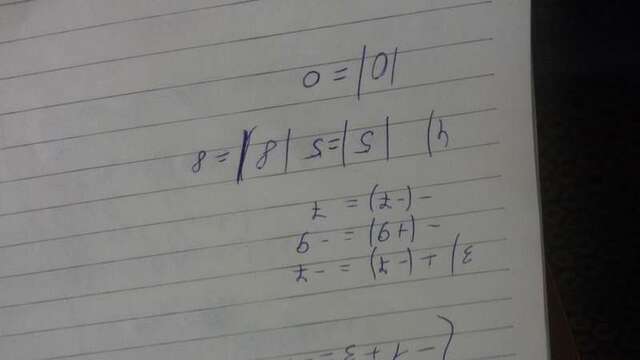 (-1+3
3) +(-7) = -7
-(+9) = -9
-(-7) = 7
4) |5|=5 |8|=8
|0|=0